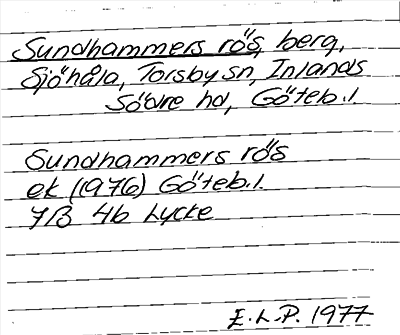 Sundhammers rö's, berg,
Sjöhåla, Torsby sn, Inlands
Södre hd, Göteb.l.
Sundhammers rö's
ek (1976) Göteb.l.
7B 4b Lycke
E.L.P. 1977